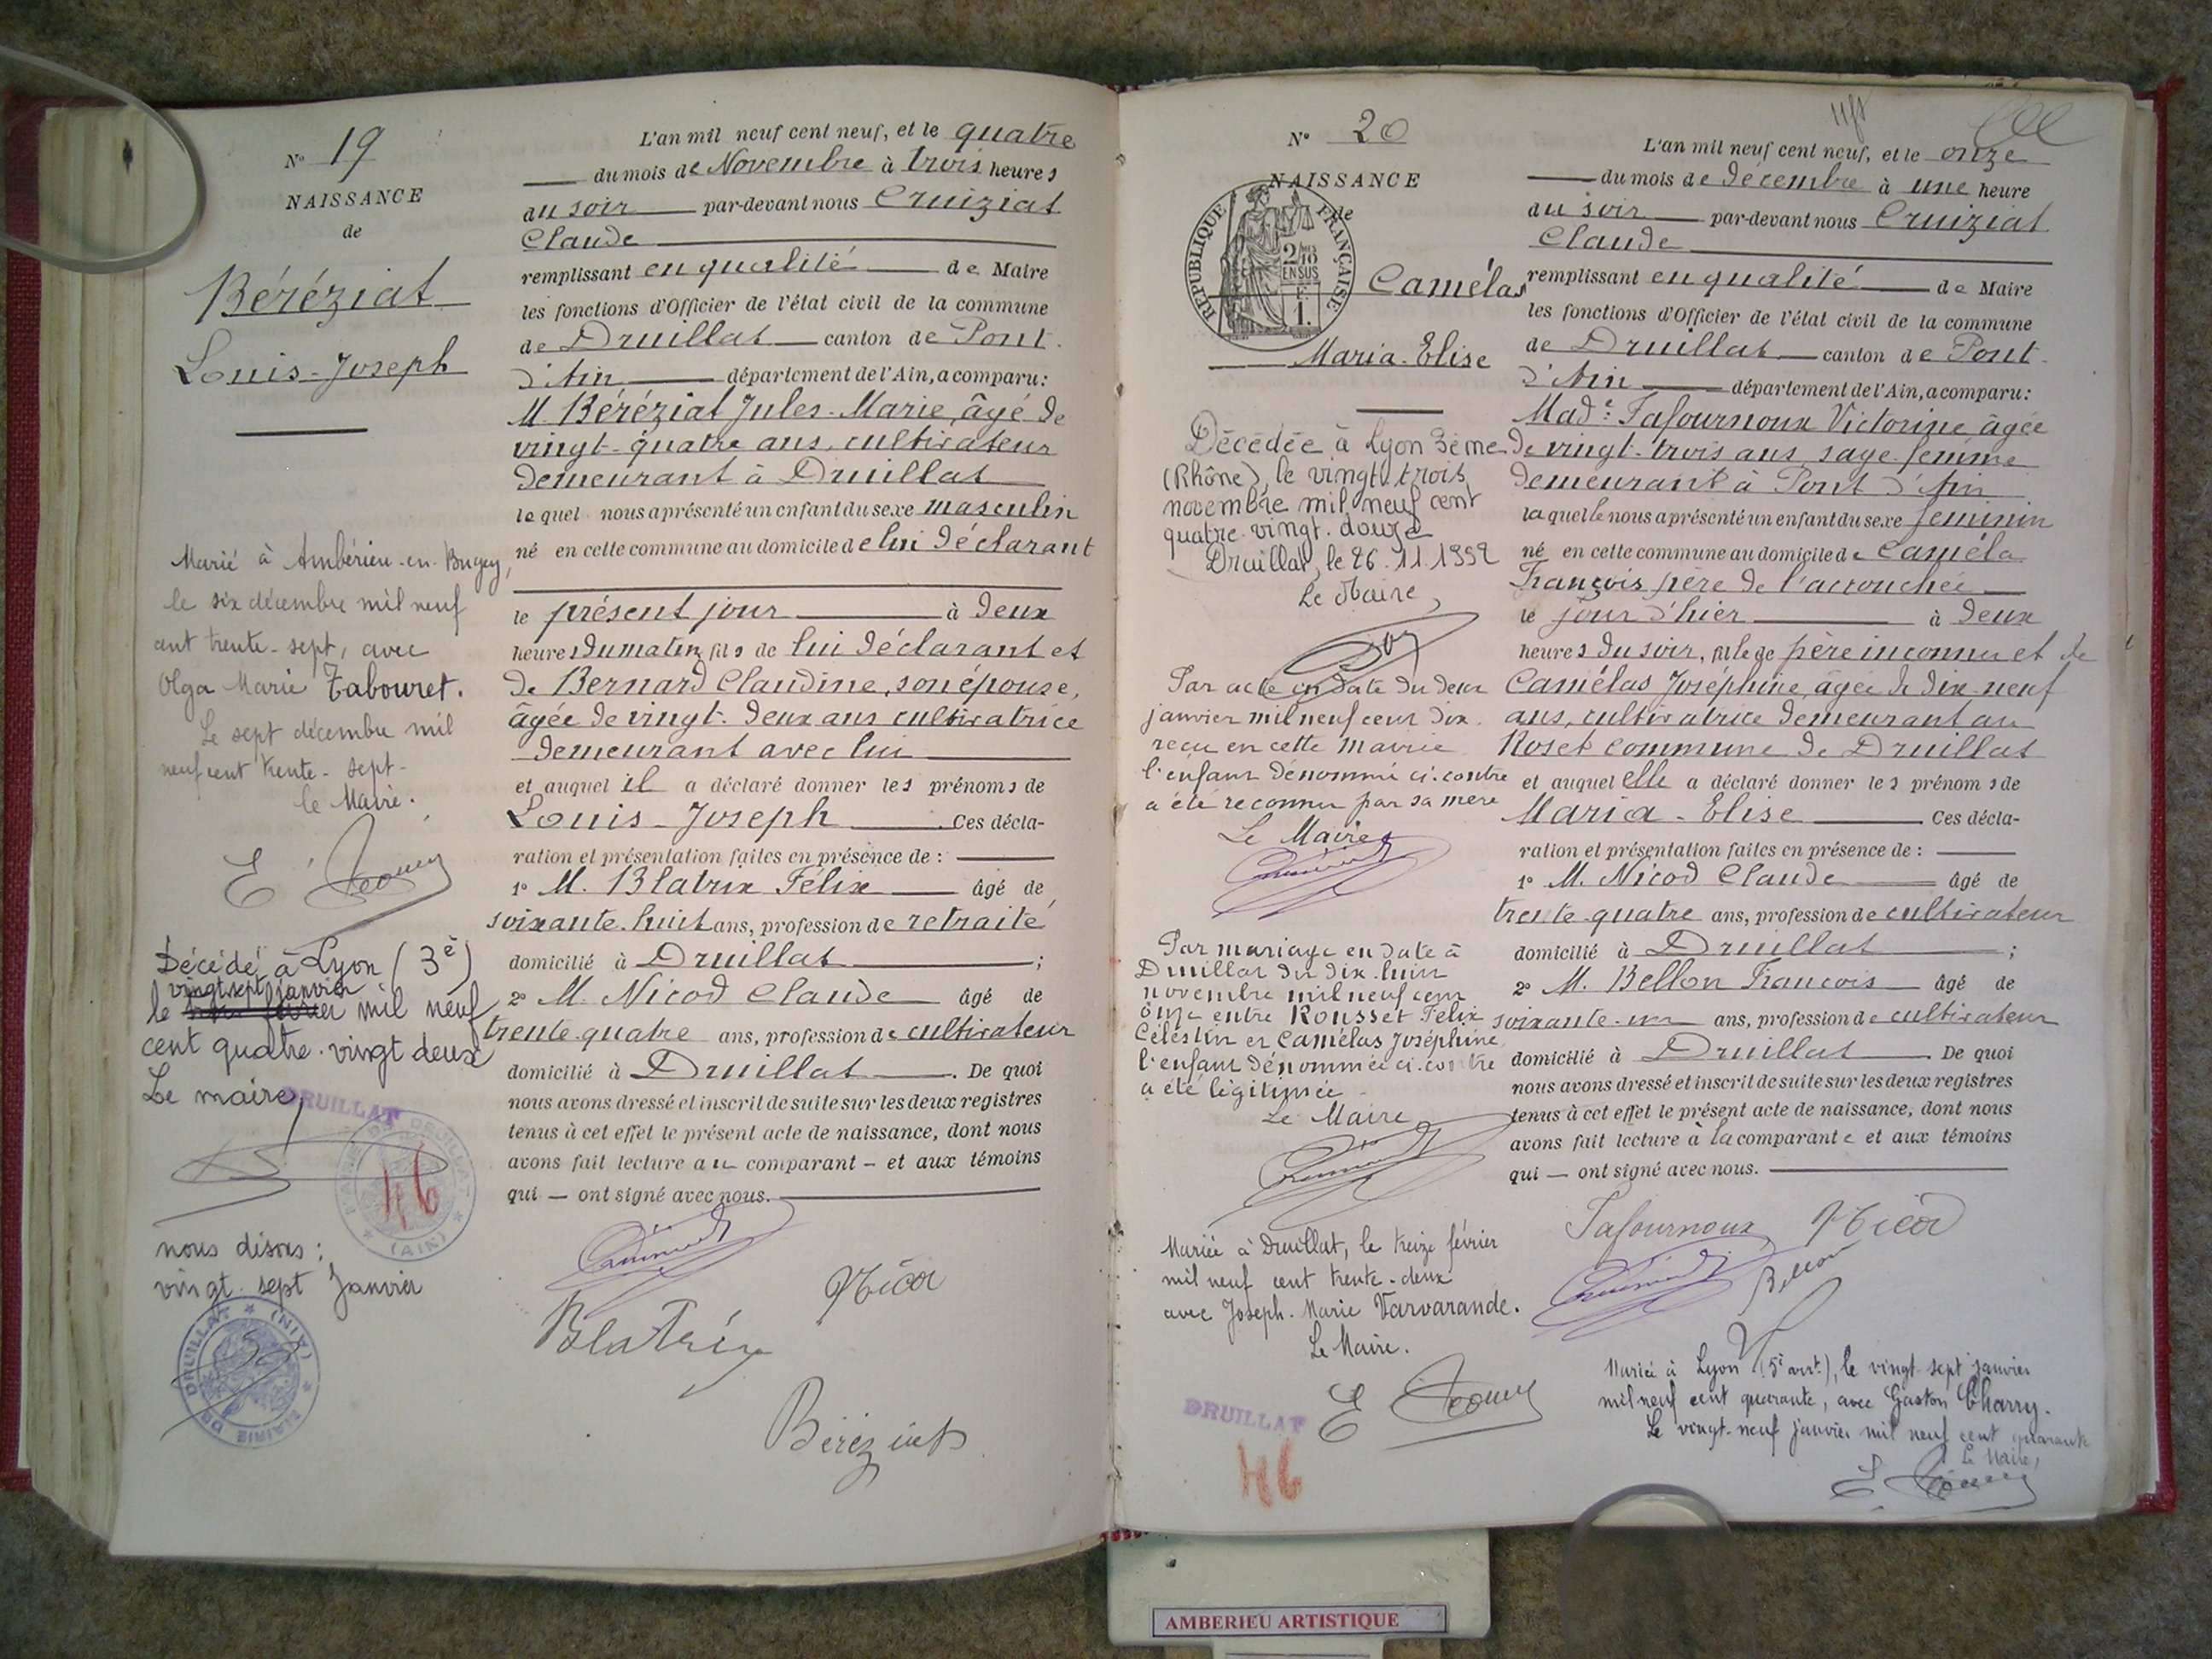 N° 19
NAISSANCE
de
Béréziat
Louis-Joseph
Marié à Ambérieu-en-Bugey,
le six décembre mil neuf
cent trente-sept, avec
Olga Marie Tabouret.
Le sept décembre mil
neuf cent trente-sept-
le Maire.
Décédé à Lyon (3è)
vingt sept janvier
le mil neuf
cent quatre-vingt deux
Le maire,
DRUILLAT
46
nous disons :
vingt-sept Janvier
MAIRIE DE DRUILLAT * (AIN) *
L'an mil neuf cent neuf, et le quatre
du mois de Novembre à trois heures
du soir par-devant nous Cruiziat
Claude
remplissant en qualité de Maire
les fonctions d'Officier de l'état civil de la commune
de Druillat canton de Pont-
d'Ain département de l'Ain, a comparu:
M. Béréziat Jules-Marie, âgé de
vingt-quatre ans, cultivateur
demeurant à Druillat
lequel nous a présenté un enfant du sexe masculin
né en cette commune au domicile de lui déclarant
le présent jour à deux
heures du matin, fils de lui déclarant et
de Bernard Claudine, son épouse,
âgée de vingt-deux ans cultivatrice
demeurant avec lui
et auquel il a déclaré donner les prénoms de
Louis-Joseph Ces décla-
ration et présentation faites en présence de :
1° M. Blatrix Félix âgé de
soixante-huit ans, profession de retraité
domicilié à Druillat ;
2° M. Nicod Claude âgé de
trente-quatre ans, profession de cultivateur
domicilié à Druillat. De quoi
nous avons dressé et inscrit de suite sur les deux registres
tenus à cet effet le présent acte de naissance, dont nous
avons fait lecture au comparant - et aux témoins
qui — ont signé avec nous.
Nicod
Blatrix
Béréziat
N° 20
NAISSANCE
de
RÉPUBLIQUE FRANÇAISE
2/10
EN SUS
1F.
Camélas
Maria-Elise
Décédée à Lyon 3ème
(Rhône), le vingt trois
novembre mil neuf cent
quatre-vingt-douze
Druillat, le 26.11.1992
Le Maire,
Par acte en date du deux
janvier mil neuf cent dix
reçu en cette mairie
l'enfant dénommé ci-contre
a été reconnu par sa mère
Le Maire
Par mariage en date à
Druillat du dix-huit
novembre mil neuf cent
onze entre Rousset Félix
Célestin et Camélas Joséphine
l'enfant dénommée ci-contre
a été légitimée
Le Maire
Mariée à Druillat, le treize février
mil neuf cent trente-deux
avec Joseph-Marie Varvarande.
Le Maire.
DRUILLAT
46
L'an mil neuf cent neuf, et le onze
du mois de décembre à une heure
du soir par-devant nous Cruiziat
Claude
remplissant en qualité de Maire
les fonctions d'Officier de l'état civil de la commune
de Druillat canton de Pont-
d'Ain département de l'Ain, a comparu:
Made Lafournoux Victorine âgée
de vingt-trois ans, sage-femme
demeurant à Pont d'Ain
laquelle nous a présenté un enfant du sexe féminin
né en cette commune au domicile de Caméla
François père de l'accouchée
le jour d'hier à deux
heures du soir, fille de père inconnu et de
Camélas Joséphine, âgée de dix-neuf
ans, cultivatrice demeurant au
Roset commune de Druillat
et auquel elle a déclaré donner les prénoms de
Maria-Elise Ces décla-
ration et présentation faites en présence de :
1° M. Nicod Claude âgé de
trente-quatre ans, profession de cultivateur
domicilié à Druillat ;
2° M. Bellon François âgé de
soixante-un ans, profession de cultivateur
domicilié à Druillat. De quoi
nous avons dressé et inscrit de suite sur les deux registres
tenus à cet effet le présent acte de naissance, dont nous
avons fait lecture à la comparante et aux témoins
qui — ont signé avec nous.
Lafournoux Nicod
Bellon
Mariée à Lyon (5è arrt.), le vingt-sept janvier
mil neuf cent quarante, avec Gaston Charry.
Le vingt-neuf janvier mil neuf cent quarante
Le Maire,
AMBERIEU ARTISTIQUE